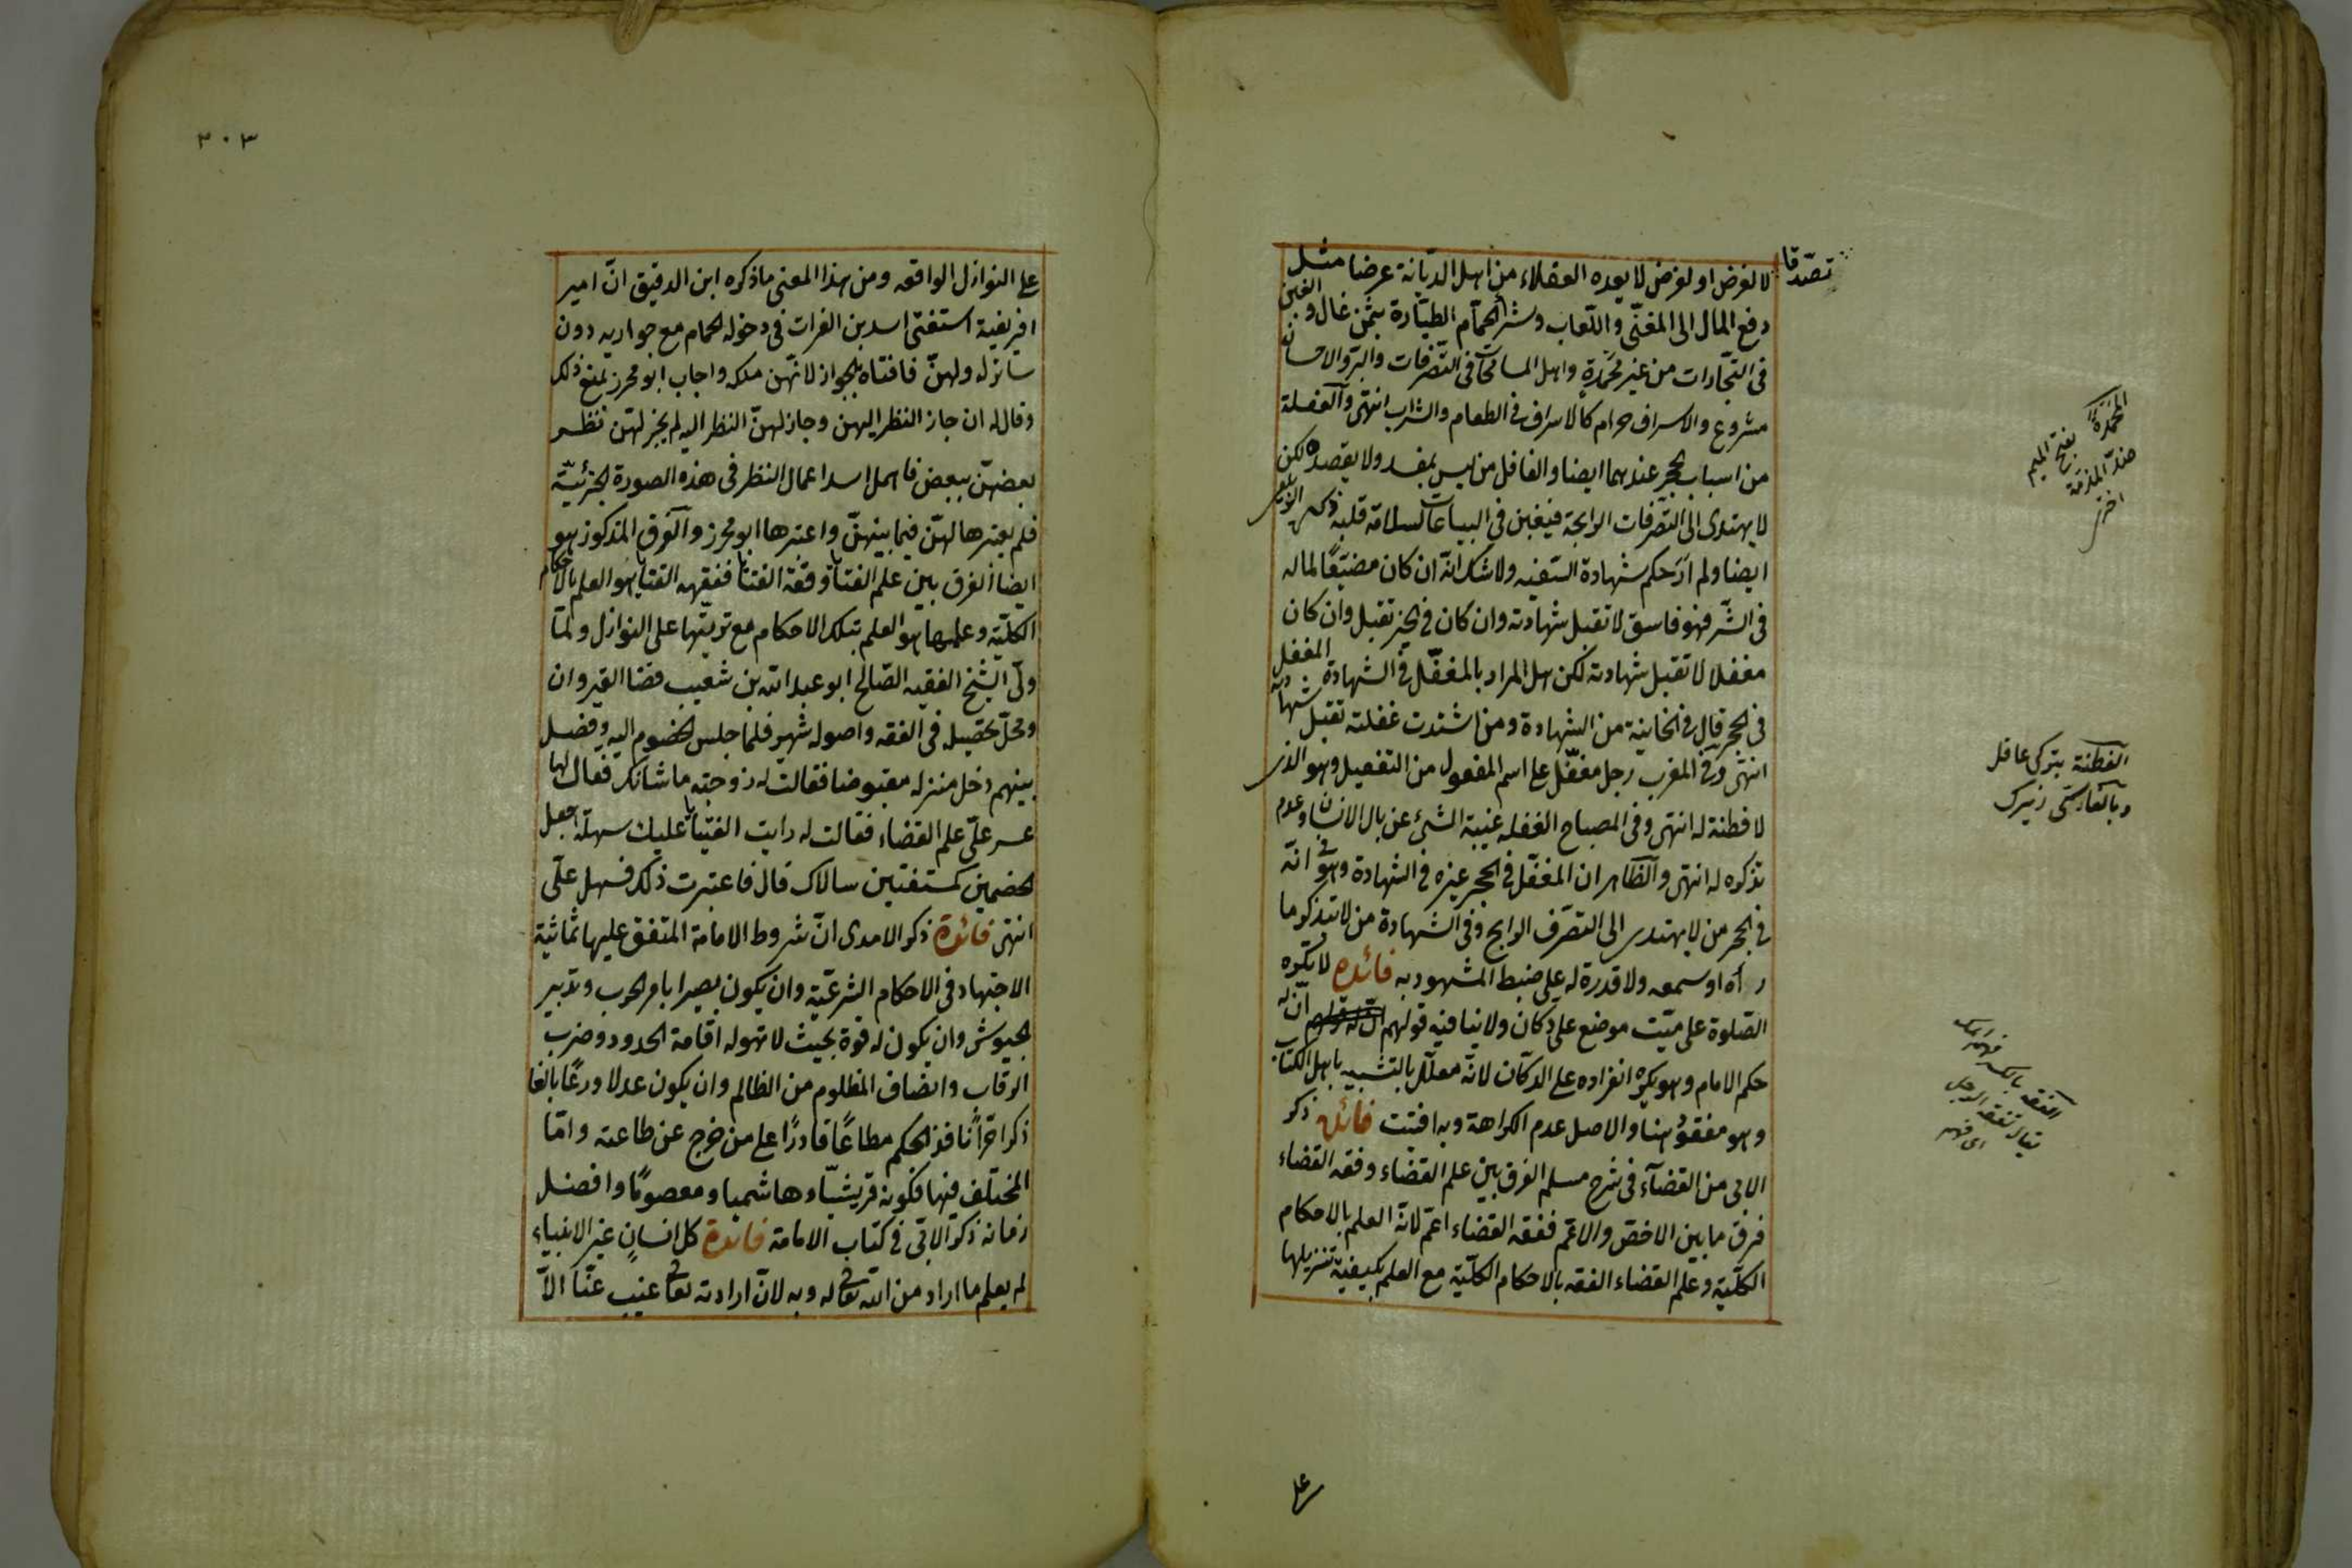 لا لغرض او لغرض لا يعده العقلاء من اهل الديانة غرضا مثل
دفع المال الى المغنى واللعاب وشرا الحمام الطيارة بثمن غال والغبن
فى التجارات من غير محمدة واهل المسامحات فى التصرفات والبر والاحسان
مشروع والاسراف حرام كالاسراف فى الطعام والشراب انتهى والغفلة
من اسباب الحجر عندهما ايضا والغافل من ليس بمفسد ولا يقصده لكن
لا يهتدى الى التصرفات الرابحة فيغبن فى البياعات لسلامة قلبه ذكره الزيلعى
ايضا ولم ار حكم شهادة السفيه ولا شك انه ان كان مضيعا لماله
فى الشر فهو فاسق لا تقبل شهادته وان كان فى الخير تقبل وان كان
مغفلا لا تقبل شهادته لكن هل المراد بالمغفل فى الشهادة المغفل
فى الحجر قال فى الخانية من الشهادة ومن اشتدت غفلته تقبل شهادته
انتهى وفى المغرب رجل مغفل على اسم المفعول من التفعيل وهو الذى
لا فطنة له انتهى وفى المصباح الغفلة غيبة الشئ عن بال الانسان وعدم
تذكره له انتهى والظاهر ان المغفل فى الحجر غيره فى الشهادة وهو فى انه
فى الحجر من لا يهتدى الى التصرف الرابح وفى الشهادة من لا يتذكر ما
رآه او سمعه ولا قدرة له على ضبط المشهود به فائده لا يكره
الصلوة على ميت موضع على دكان ولا ينافيه قولهم ان له
حكم الامام وهو يكره انفراده على الدكان لانه معلل بالتشبيه باهل الكتاب
وهو مفقود هنا والاصل عدم الكراهة وبه افتيت فائده ذكر
الابى من القضاء فى شرح مسلم الفرق بين علم القضاء وفقه القضاء
فرق ما بين الاخص والاعم ففقه القضاء اعم لانه العلم بالاحكام
الكلية وعلم القضاء الفقه بالاحكام الكلية مع العلم بكيفية تنزيلها
تصدقا
المحمدة بفتح الميم
ضد المذمة
اخترى
الفطنة بتركى عاقل
وبالفارسى زيرك
الفقه بالكسر فهم ايمك
يقال تفقه الرجل
اى فهم
على
٣٠٣
على النوازل الواقعه ومن هذا المعنى ما ذكره ابن الدقيق ان امير
افريقية استفتى اسد بن الفرات فى دخوله الحمام مع جواريه دون
ساتر له ولهن فافتاه بالجواز لانهن ملكه واجاب ابو محرز بمنع ذلك
وقال له ان جاز النظر اليهن وجاز لهن النظر اليه لم يجز لهن نظر
بعضهن ببعض فاهمل اسد اعمال النظر فى هذه الصورة الجزئية
فلم يعتبرها لهن فيما بينهن واعتبرها ابو محرز والفرق المذكور هو
ايضا الفرق بين علم الفتيا وفقه الفتيا ففقهه الفتيا هو العلم بالاحكام
الكلية وعلمها هو العلم بتلك الاحكام مع ترتبها على النوازل ولما
ولى الشيخ الفقيه الصالح ابو عبد الله بن شعيب قضا القيروان
ومحل تحصيله فى الفقه واصوله شهير فلما جلس الخصوم اليه وفصل
بينهم دخل منزله مقبوضا فقالت له زوجته ما شانك فقال لها
عسر على علم القضاء فقالت له رايت الفتيا عليك سهلة اجعل
الخصمين كمستفتين سالاك قال فاعتبرت ذلك فسهل على
انتهى فائدة ذكر الامدى ان شروط الامامة المتفق عليها ثمانية
الاجتهاد فى الاحكام الشرعية وان يكون بصيرا بامر الحرب وتدبير
الجيوش وان يكون له قوة بحيث لا تهوله اقامة الحدود وضرب
الرقاب وانصاف المظلوم من الظالم وان يكون عدلا ورعا بالغا
ذكرا حرا نافذ الحكم مطاعا قادرا على من خرج عن طاعته واما
المختلف فيها فكونه قريشيا وهاشميا ومعصوما وافضل
زمانه ذكره الابى فى كتاب الامامة فائدة كل انسان غير الانبياء
لم يعلم ما اراد من الله تعالى له وبه لان ارادته تعالى غيب عنا الا